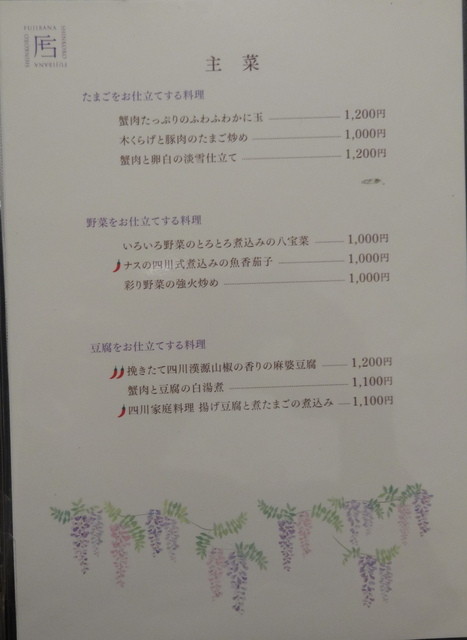 FUJIBANA
居
主 菜
たまごをお仕立てする料理
蟹肉たっぷりのふわふわかに玉 1,200円
木くらげと豚肉のたまご炒め 1,000円
蟹肉と卵白の淡雪仕立て 1,200円
野菜をお仕立てする料理
いろいろ野菜のとろとろ煮込みの八宝菜 1,000円
ナスの四川式煮込みの魚香茄子 1,000円
彩り野菜の強火炒め 1,000円
豆腐をお仕立てする料理
挽きたて四川漢源山椒の香りの麻婆豆腐 1,200円
蟹肉と豆腐の白湯煮 1,100円
四川家庭料理 揚げ豆腐と煮たまごの煮込み 1,100円